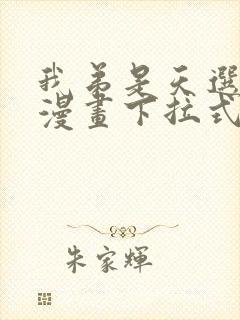 我弟是天選
漫畫下拉式
朱家輝